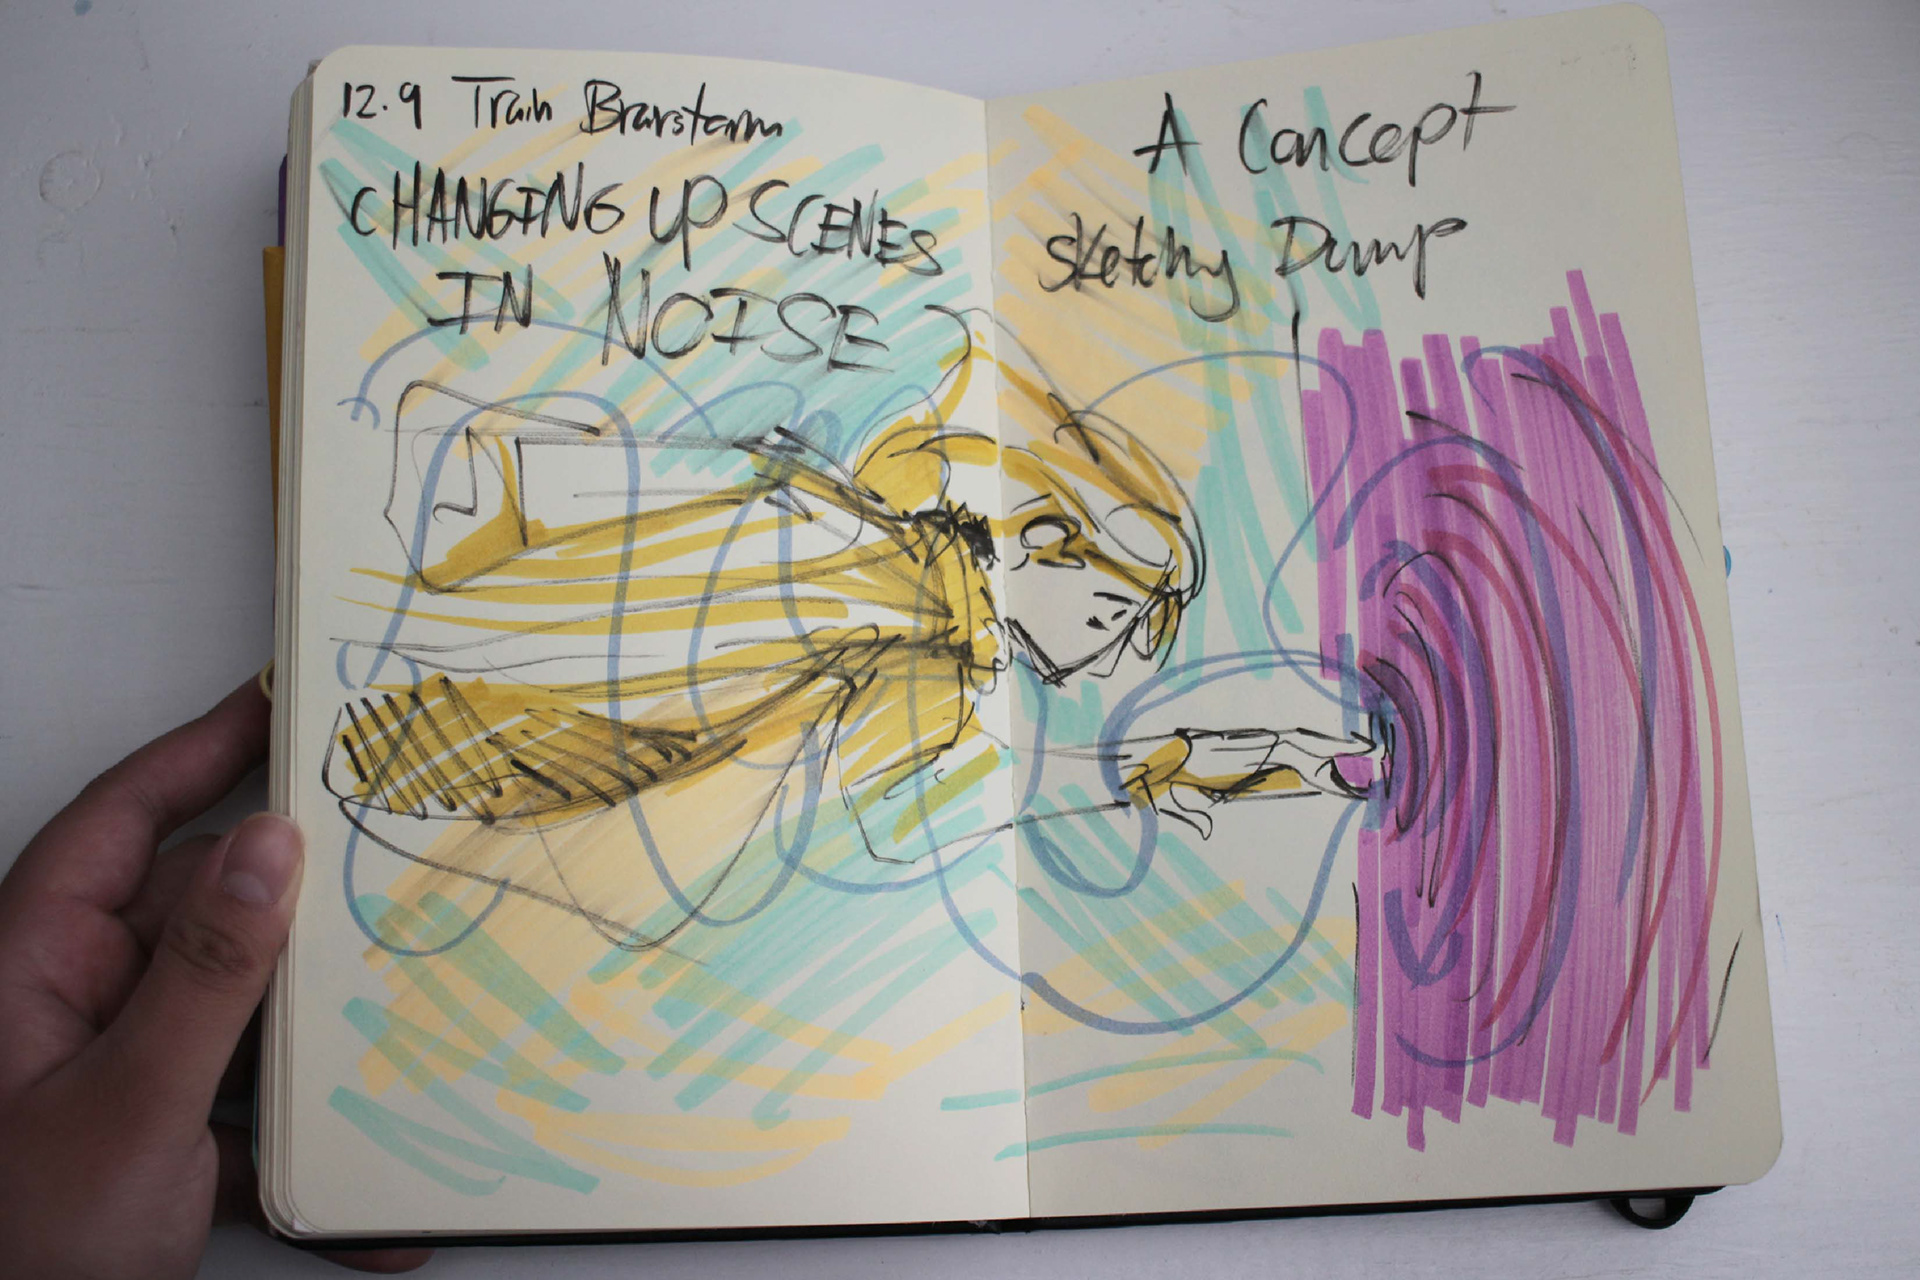 12.9 Train Brainstorm
CHANGING UP SCENES
IN NOISE
A Concept
Sketchy Dump